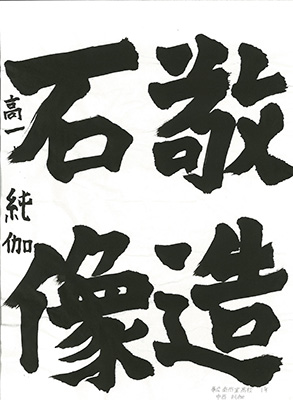 敬造
石像
高一 純伽